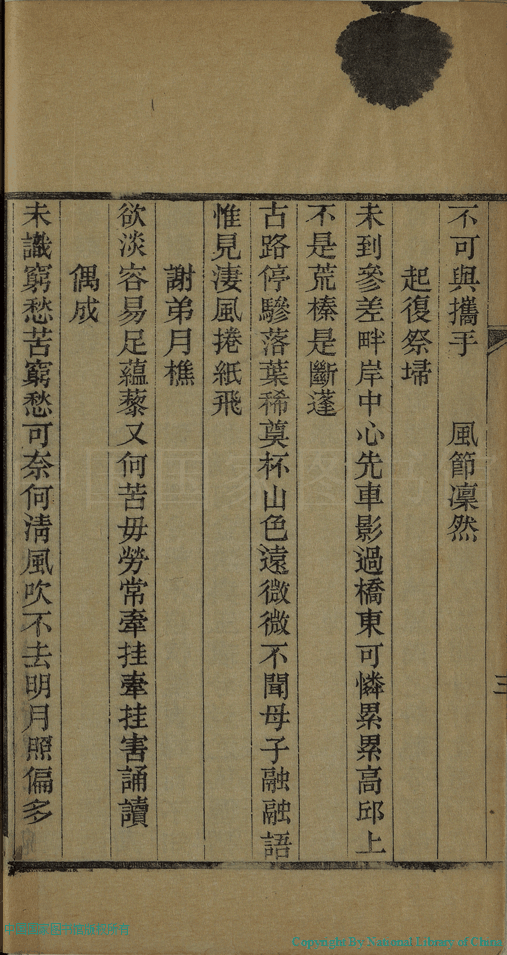 不可與攜手　　風節凜然
起復祭埽
未到參差畔岸中心先車影過橋東可憐累累高邱上
不是荒榛是斷蓬
古路停驂落葉稀奠杯山色遠微微不聞母子融融語
惟見淒風捲紙飛
謝弟月樵
欲淡容易足蘊藜又何苦毋勞常牽挂牽挂害誦讀
偶成
未識窮愁苦窮愁可奈何清風吹不去明月照偏多
三
Copyright by National Library of China